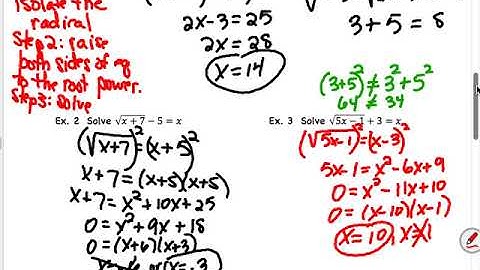 isolate the
radical
Step 2: raise
both sides of eq
to the root power.
Step 3: solve
2x-3=25
2x=28
x=14
3+5=8
(3+5)² ≠ 3²+5²
64 ≠ 34
Ex. 2 Solve √x+7 - 5 = x
(√x+7)² = (x+5)²
x+7=(x+5)(x+5)
x+7=x²+10x+25
0=x²+9x+18
0=(x+6)(x+3)
Ex. 3 Solve √5x-1 + 3 = x
(√5x-1)² = (x-3)²
5x-1=x²-6x+9
0=x²-11x+10
0=(x-10)(x-1)
x=10, x≠1